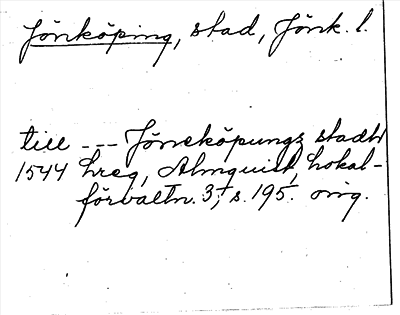 Jönköping, stad, Jönk. l.
till --- Jöneköpungs stadh
1544 hreg, Almquist, Lokal-
förvaltn. 3, s. 195. orig.